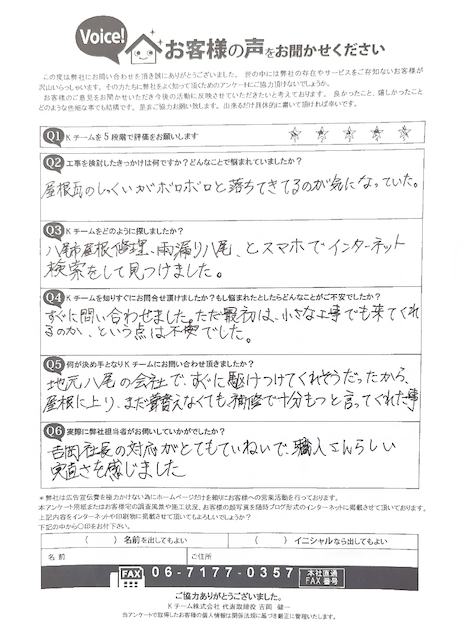 Voice! お客様の声をお聞かせください
この度は弊社にお問い合わせを頂き誠にありがとうございました。世の中には弊社の存在やサービスをご存知ないお客様が
沢山いらっしゃいます。そのような方たちに弊社をよく知って頂くためのアンケートにご協力頂けないでしょうか。
お客様のご意見をお聞かせいただき今後の活動に反映させていただきたいと考えております。良かったこと、嬉しかったこと
どのような些細な事でも結構です。是非ご協力お願い致します。出来るだけ具体的に書いて頂ければ幸いです。
Q1 Kチームを5段階で評価をお願いします
Q2 工事を検討したきっかけは何ですか？どんなことで悩まれていましたか？
屋根瓦のしっくいがボロボロと落ちてきてるのが気になっていた。
Q3 Kチームをどのように探しましたか？
八尾市屋根修理、雨漏り八尾、とスマホでインターネット
検索をして見つけました。
Q4 Kチームを知りすぐにお問合せ頂けましたか？もし悩まれたとしたらどんなことがご不安でしたか？
すぐに問い合わせました。ただ最初は、小さな工事でも来てくれ
るのか、という点は不安でした。
Q5 何が決め手となりKチームにお問い合わせ頂けましたか？
地元八尾の会社で、すぐに駆けつけてくれそうだったから、
屋根に上り、まだ葺替えなくても、補修で十分もつと言ってくれた事
Q6 実際に弊社担当者がお伺いしていかがでしたか？
吉岡社長の対応がとてもていねいで、職人さんらしい
実直さを感じました
＊弊社は広告宣伝費を極力かけない為にホームページだけを頼りにお客様への営業活動を行っております。
本アンケート用紙またはお客様宅の調査風景や施工状況、お客様の顔写真を随時ブログ形式のインターネットに掲載させて頂いております。
上記内容をインターネットや印刷物に掲載させて頂いてもよろしいでしょうか？
下記の中から〇印をお付下さい。
（ ）名前を出してもよい （ ）イニシャルなら出してもよい
名前 ご住所
FAX 06-7177-0357 本社直通FAX番号
ご協力ありがとうございました。
Kチーム株式会社 代表取締役 吉岡 健一
当アンケートで取得したお客様の個人情報は関係法規に基づき厳正に管理いたします。